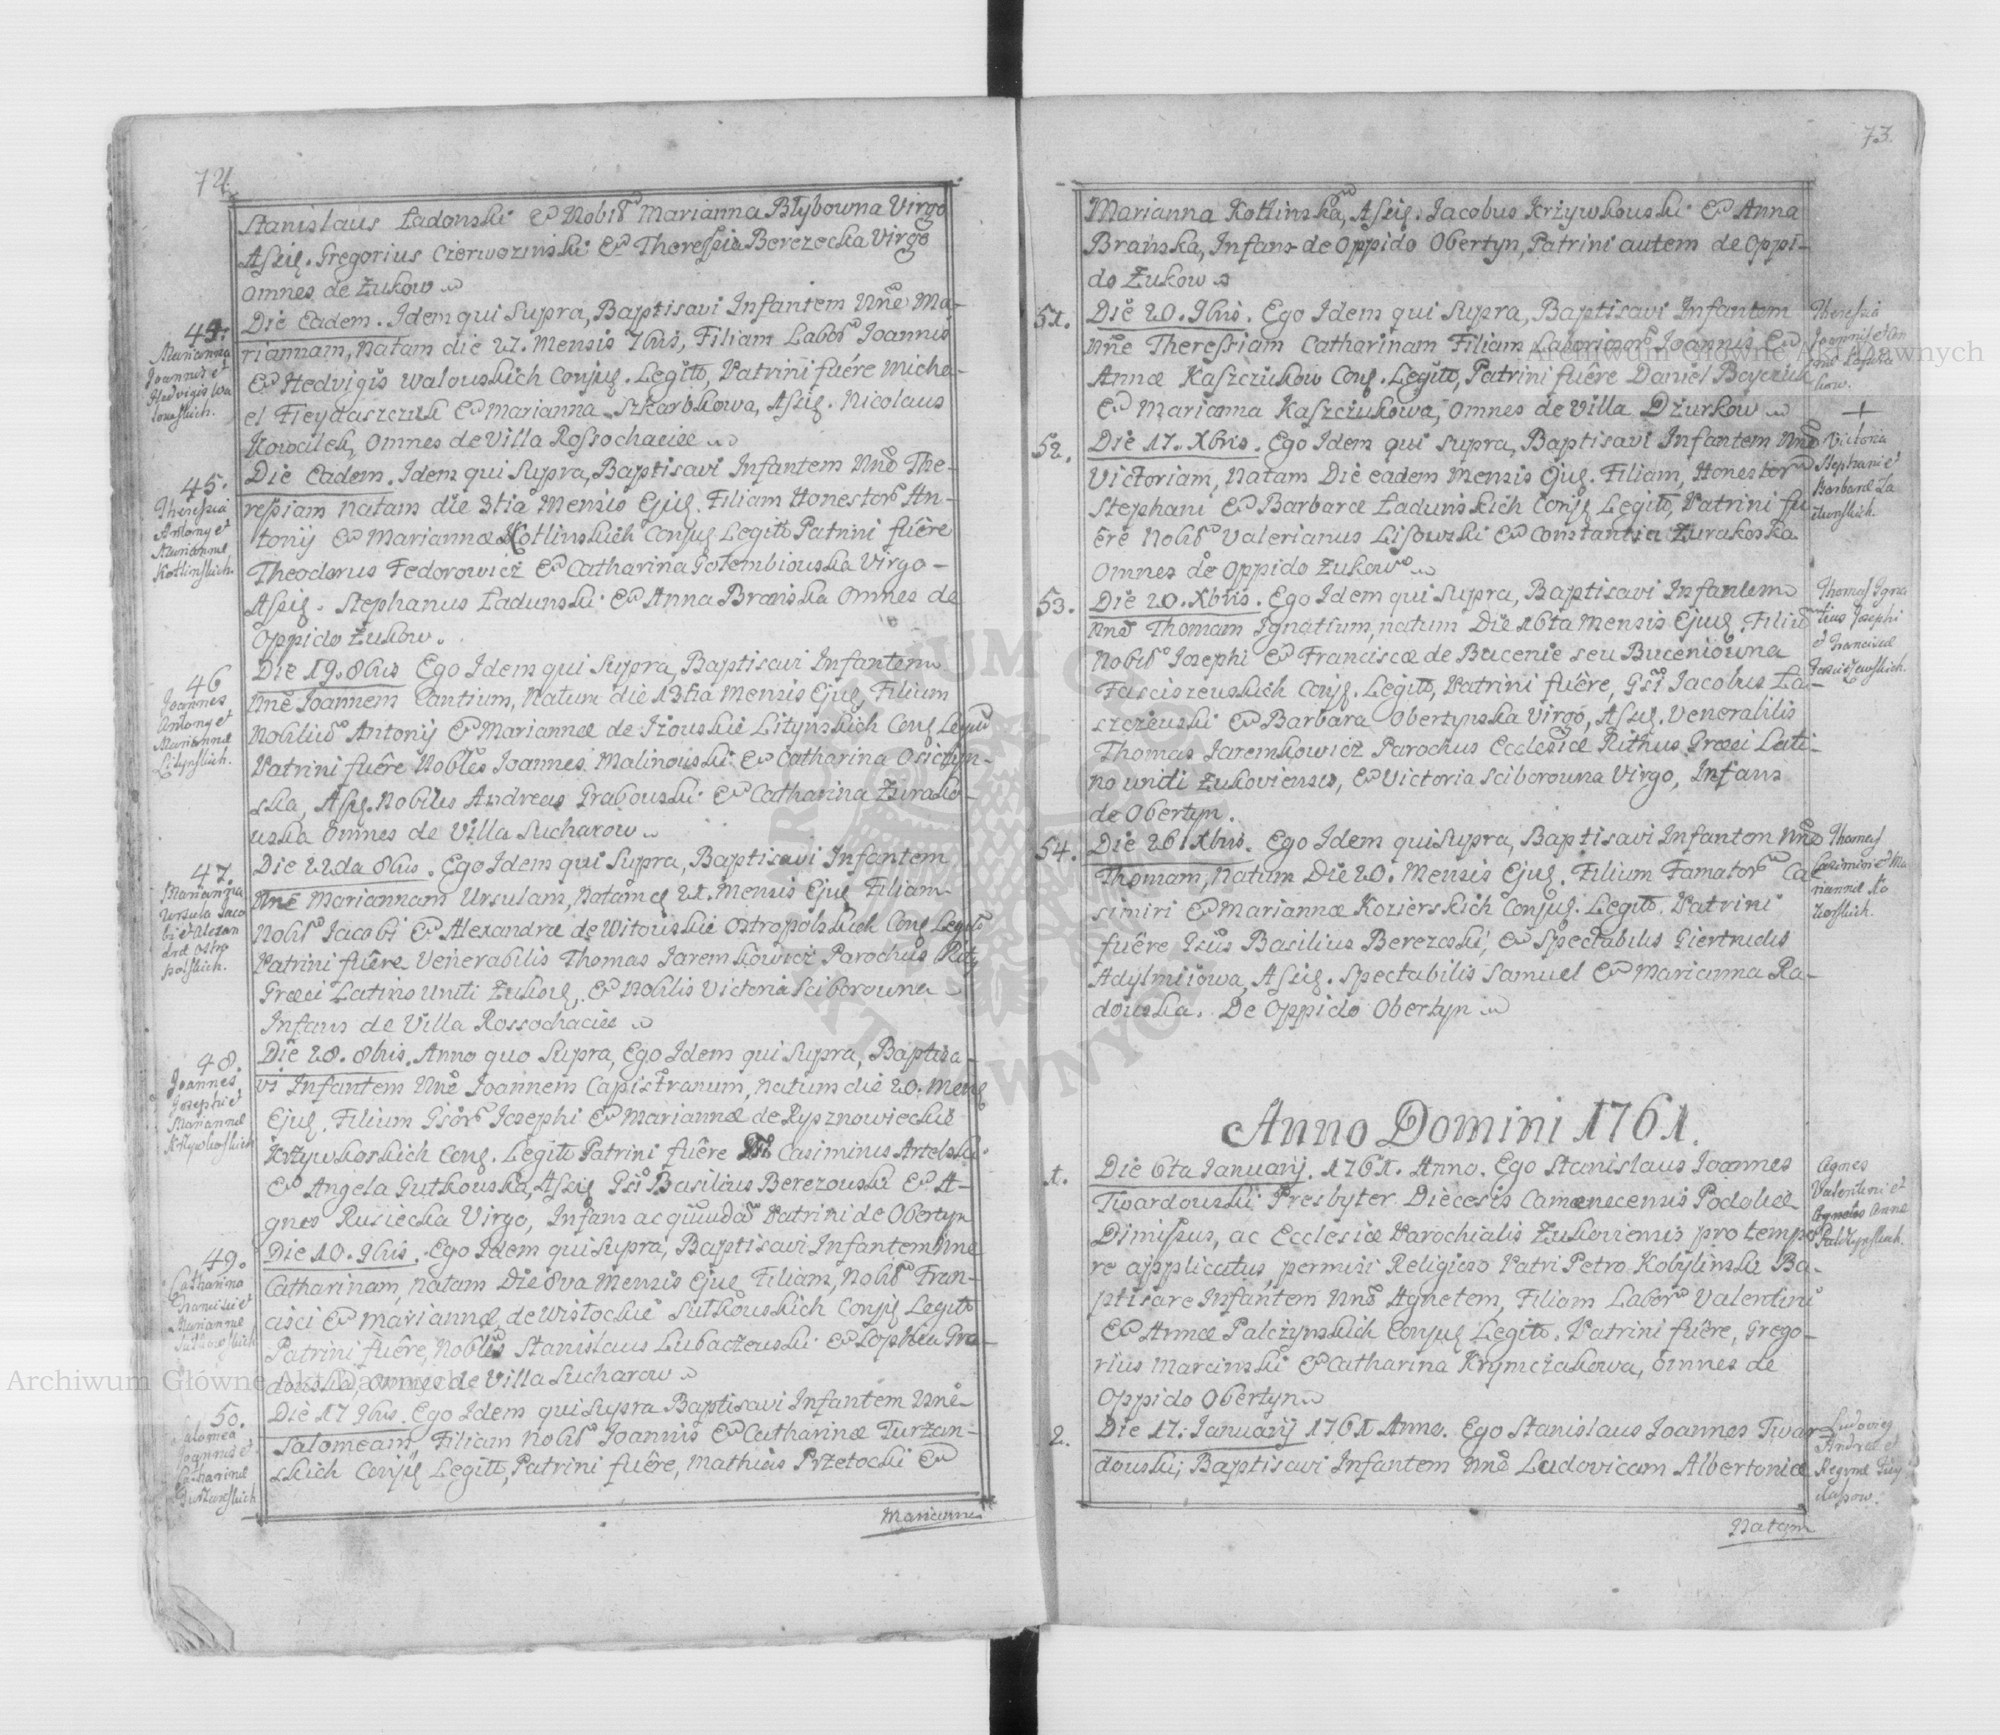 72.
Stanislaus Ładonski et Nobis Marianna Błybowna Virgo
Assis. Gregorius Czerwozinski et Theressia Berezecka Virgo
omnes de Żukow
44.
Marianna
Joannis et
Hedvigis Wa
louskich.
Die Eadem. Idem qui supra, Baptisavi Infantem Nne Ma-
riannam, natam die 21. Mensis 7bris, Filiam Labor Joannis
et Hedvigis Walouskich Conjug. Legitt, Patrini fuêre Micha-
el Heydaszczuk et Marianna Szkarbkowa, Assis. Nicolaus
Kowalek, omnes de Villa Rossochacise
45.
Theresia
Antony et
Mariannæ
Kotlinskich.
Die Eadem. Idem qui supra, Baptisavi Infantem Nne The-
ressiam natam die 3tia Mensis Ejus. Filiam Honestor An-
tonij et Mariannæ Kotlinskich Conjug Legitt Patrini fuêre
Theodorus Fedorowicz et Catharina Gołembiouska Virgo -
Assis. Stephanus Ładunski et Anna Brańska omnes de
Oppido Żukow.
46
Joannes,
Antony et
Mariannæ
Litynskich.
Die 19. 8bris Ego Idem qui supra, Baptisavi Infantem
Nne Joannem Cantium, Natum die 13tia Mensis Ejus, Filium
Nobiliu Antonij et Mariannæ de Iżouskie Litynskich Conj Legitt
Patrini fuêre Nobles Joannes Malinouski et Catharina Osiczyn-
ska, Assis. Nobiles Andreas Grabouski et Catharina Żurako-
uska omnes de Villa Sucharow
47.
Marianna
Ursula Jaco
bi et Alexan
dræ Ostro
polskich.
Die 22da 8bris. Ego Idem qui supra, Baptisavi Infantem
Nne Mariannam Ursulam, Natam 21. Mensis Ejus Filiam
Nobis Jacobi et Alexandræ de Witouskie Ostropolskich Conj Legitt
Patrini fuêre Venerabilis Thomas Jaremkowicz Parochus Rits
Græci Latino Uniti Żukov, et Nobilis Victoria Sciborowna
Infans de Villa Rossochacise
48.
Joannes,
Josephi et
Mariannæ
Krzywkoskich
Die 28. 8bris. Anno quo supra, Ego Idem qui supra, Baptisa-
vi Infantem Nne Joannem Capistranum, natum die 20. Mens
Ejus, Filium Gsor Josephi et Mariannæ de Rysznowieckie
Krzywkoskich Conj. Legitt Patrini fuêre Casimirus Artelski
et Angela Gutkouska, Assis Gsi Basilius Berezouski et A-
gnes Rusiecka Virgo, Infans ac quidā Patrini de Obertyn
49.
Catharina
Francisci et
Mariannæ
Sutkouskich
Die 10. 9bris. Ego Idem qui supra, Baptisavi Infantem Nne
Catharinam, natam Die 8va Mensis Ejus Filiam, Nobis Fran-
cisci et Mariannæ, de Wistockie Sutkouskich Conjug Legitt
Patrini fuêre, Noblis Stanislaus Lubaczeuski et Sophia Gra-
douska, omnes de Villa Sucharow
50.
Salomea
Joannis et
Catharinæ
Turzanskich
Die 17 9bris. Ego Idem qui supra Baptisavi Infantem Nne
Salomeam, Filiam Nobis Joannis et Catharinæ Turżan-
skich Conjug Legitt, Patrini fuêre, Mathias Przetocki et
Marianna
73.
Marianna Kotlinska, Assis. Jacobus Krżywkouski et Anna
Brańska, Infans de Oppido Obertyn, Patrini autem de Oppi-
do Żukow
51.
Die 20. 9bris. Ego Idem qui supra, Baptisavi Infantem
Nne Theressiam Catharinam Filiam Laborios Joannis et
Annæ Kaszcżukow Conj. Legitt, Patrini fuêre Daniel Boyczuk
et Marianna Kaszcżukowa, omnes de Villa Dżurkow
Theresia
Joannis et An
næ Kaszczu
kow.
52.
Die 17. Xbris. Ego Idem qui supra, Baptisavi Infantem Nne
Victoriam, Natam Die eadem Mensis Ejus. Filiam, Honestor
Stephani et Barbaræ Ładunskich Conjug Legitt, Patrini fu-
êre Nobis Valerianus Lisowski et Constantia Żurakoska
Omnes de Oppido Żukow
Victoria
Stephani et
Barbaræ Ła
dunskich.
53.
Die 20. Xbris. Ego Idem qui supra, Baptisavi Infantem
Nne Thomam Ignatium, natum Die 16ta Mensis Ejus. Filiu
Nobis Josephi et Franciscæ de Bucenie seu Buceniowna
Fasciszeuskich Conj. Legitt, Patrini fuêre, Gsi Jacobus Ła-
szcżeuski et Barbara Obertynska Virgo, Assis. Venerabilis
Thomas Jaremkowicż Parochus Ecclesiæ Rithus Græci Lati-
no uniti Żukoviensis, et Victoria Sciborouna Virgo, Infans
de Obertyn.
Thomas Igna
tius Josephi
et Franciscæ
Fasciszeuskich.
54.
Die 26 Xbris. Ego Idem qui supra, Baptisavi Infantem Nne
Thomam, natum Die 20. Mensis Ejus. Filium Famator Ca-
simiri et Mariannæ Kozierskich Conjug. Legitt. Patrini
fuêre Gsus Basilius Berezoski, et Spectabilis Giertrudis
Adylmijowa, Assis. Spectabilis Samuel et Marianna Ra-
douska. De Oppido Obertyn
Thomas
Casimiri et Ma
riannæ Ko
zierskich.
Anno Domini 1761.
1.
Die 6ta Januarij. 1761. Anno. Ego Stanislaus Joannes
Twardouski Presbyter Diecesis Camenecensis Podoliæ
Dimissus, ac Ecclesiæ Parochialis Żukoviensis pro tempo-
re applicatus, permisi Religioso Patri Petro Kobylinski Ba-
ptisare Infantem Nne Agnetem, Filiam Labor Valentini
et Annæ Palcżynskich Conjug Legitt. Patrini fuêre, Grego-
rius Marcinski et Catharina Krymcżakowa, omnes de
Oppido Obertyn
Agnes
Valentini et
Agnetes Annæ
Palczynskich.
2.
Die 17. Januarij 1761 Anno. Ego Stanislaus Joannes Twar-
douski, Baptisavi Infantem Nne Ludovicam Albertoniæ
Ludovica
Andreæ et
Reginæ
Natam
Archiwum Główne Akt Dawnych
Archiwum Główne Akt Dawnych
ARCHIWUM GŁÓWNE AKT DAWNYCH